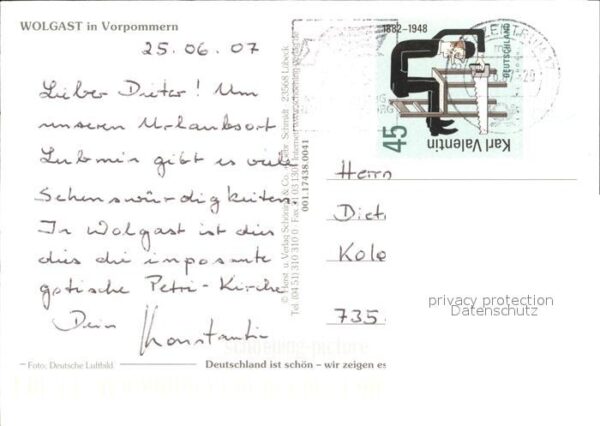 WOLGAST in Vorpommern
25.06.07
Lieber Dieter! Um
unseren Urlaubsort
Lubmin gibt es viele
Sehenswürdigkeiten.
In Wolgast ist dies
dies die imposante
gotische Petri-Kirche
Dein Konstantin
Foto: Deutsche Luftbild
Deutschland ist schön – wir zeigen es
© Herst. u. Verlag Schöning & Co. + Gebr. Schmidt · 23568 Lübeck
Tel. (04 51) 310 310 0
001.17438.0041
1882-1948
DEUTSCHLAND
Karl Valentin
45
Herrn
Diet
Kole
735
privacy protection
Datenschutz